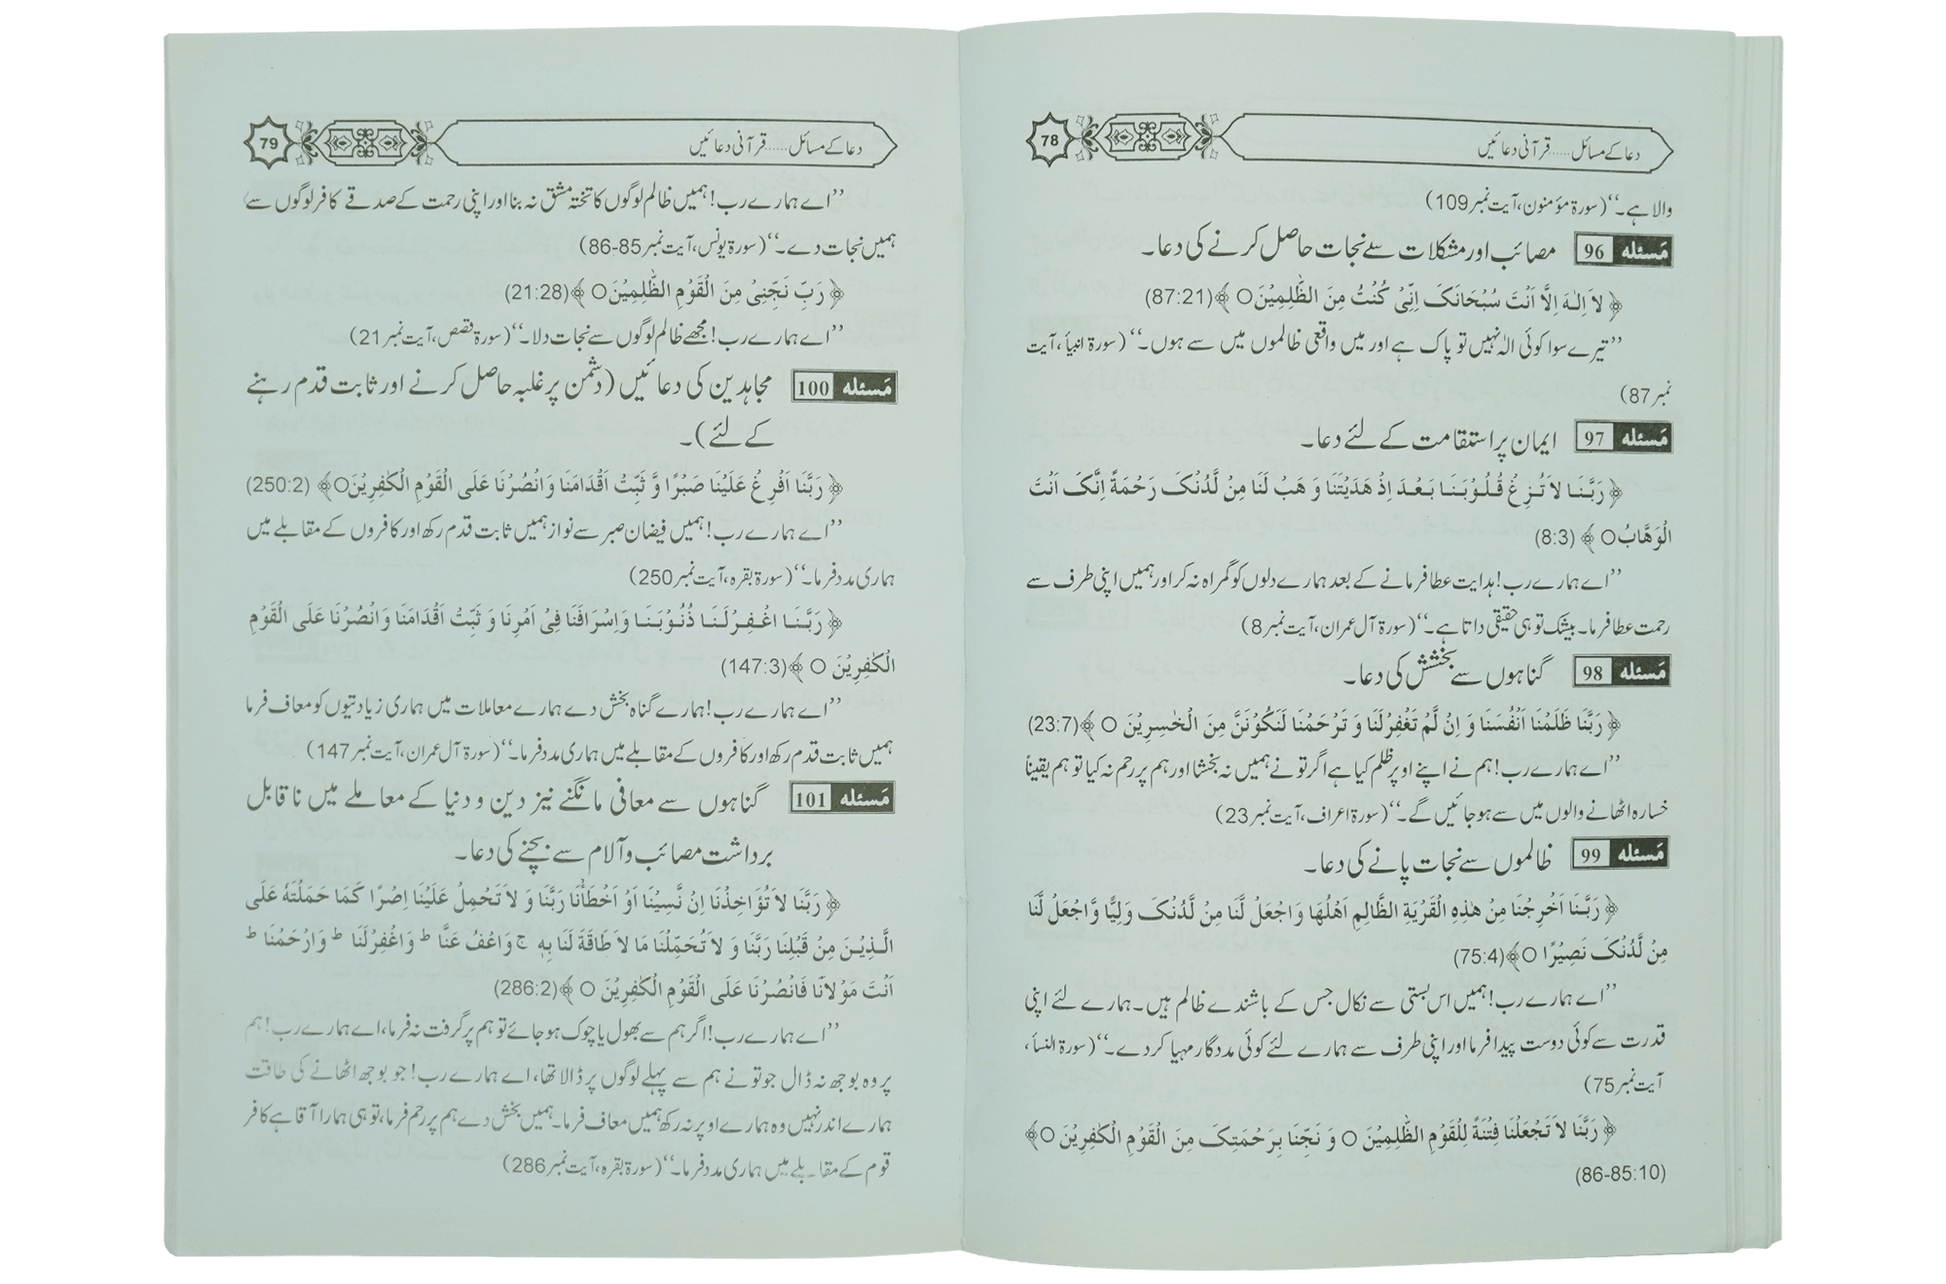 78
دعا کے مسائل.....قرآنی دعائیں
والا ہے۔‘‘(سورۃ مؤمنون،آیت نمبر109)
مَسئلہ 96 مصائب اور مشکلات سے نجات حاصل کرنے کی دعا۔
﴿ لاَ اِلٰـہَ اِلَّا اَنْتَ سُبْحَانَکَ اِنِّیْ کُنْتُ مِنَ الظّٰلِمِیْنَ○ ﴾(87:21)
’’تیرے سوا کوئی الٰہ نہیں تو پاک ہے اور میں واقعی ظالموں میں سے ہوں۔‘‘(سورۃ انبیأ ،آیت
نمبر87)
مَسئلہ 97 ایمان پر استقامت کے لئے دعا۔
﴿ رَبَّـنَـا لاَ تُـزِغْ قُـلُـوْبَـنَـا بَـعْـدَ اِذْ ھَدَیْتَنَا وَ ھَبْ لَنَا مِنْ لَّدُنْکَ رَحْمَةً اِنَّکَ اَنْتَ
الْوَھَّابُ○ ﴾ (8:3)
’’اے ہمارے رب! ہدایت عطا فرمانے کے بعد ہمارے دلوں کو گمراہ نہ کر اور ہمیں اپنی طرف سے
رحمت عطا فرما۔ بیشک تو ہی حقیقی داتا ہے۔‘‘(سورۃ آل عمران،آیت نمبر8)
مَسئلہ 98 گناہوں سے بخشش کی دعا۔
﴿ رَبَّنَا ظَلَمْنَا اَنْفُسَنَا وَ اِنْ لَّمْ تَغْفِرْلَنَا وَ تَرْحَمْنَا لَنَکُوْنَنَّ مِنَ الْخٰسِرِیْنَ ○ ﴾(23:7)
’’اے ہمارے رب! ہم نے اپنے اوپر ظلم کیا ہے اگر تو نے ہمیں نہ بخشا اور ہم پر رحم نہ کیا تو ہم یقیناً
خسارہ اٹھانے والوں میں سے ہو جائیں گے۔‘‘(سورۃ اعراف،آیت نمبر23)
مَسئلہ 99 ظالموں سے نجات پانے کی دعا۔
﴿ رَبَّـنـا اَخْرِجْنَا مِنْ ھٰذِہِ الْقَرْیَةِ الظَّالِمِ اَھْلُھَا وَاجْعَلْ لَّنَا مِنْ لَّدُنْکَ وَلِیًّا وَّاجْعَلْ لَّنَا
مِنْ لَّدُنْکَ نَصِیْرًا ○ ﴾(75:4)
’’اے ہمارے رب! ہمیں اس بستی سے نکال جس کے باشندے ظالم ہیں۔ ہمارے لئے اپنی
قدرت سے کوئی دوست پیدا فرما اور اپنی طرف سے ہمارے لئے کوئی مددگار مہیا کر دے۔‘‘(سورۃ النسأ،
آیت نمبر75)
﴿ رَبَّنَا لاَ تَجْعَلْنَا فِتْنَةً لِلْقَوْمِ الظّٰلِمِیْنَ ○ وَ نَجِّنَا بِرَحْمَتِکَ مِنَ الْقَوْمِ الْکٰفِرِیْنَ ○﴾
(86-85:10)
79
دعا کے مسائل.....قرآنی دعائیں
’’اے ہمارے رب! ہمیں ظالم لوگوں کا تختہ مشق نہ بنا اور اپنی رحمت کے صدقے کافر لوگوں سے
ہمیں نجات دے۔‘‘(سورۃ یونس،آیت نمبر85-86)
﴿ رَبِّ نَجِّنِیْ مِنَ الْقَوْمِ الظّٰلِمِیْنَ○ ﴾(21:28)
’’اے ہمارے رب! مجھے ظالم لوگوں سے نجات دلا۔‘‘(سورۃ قصص،آیت نمبر21)
مَسئلہ 100 مجاہدین کی دعائیں (دشمن پر غلبہ حاصل کرنے اور ثابت قدم رہنے
کے لئے)۔
﴿ رَبَّنَا اَفْرِغْ عَلَیْنَا صَبْرًا وَّ ثَبِّتْ اَقْدَامَنَا وَانْصُرْنَا عَلَی الْقَوْمِ الْکٰفِرِیْنَ○﴾ (250:2)
’’اے ہمارے رب! ہمیں فیضان صبر سے نواز ہمیں ثابت قدم رکھ اور کافروں کے مقابلے میں
ہماری مدد فرما۔‘‘(سورۃ بقرہ،آیت نمبر250)
﴿ رَبَّـنَـا اغْـفِـرْلَـنَـا ذُنُـوْبَـنَـا وَاِسْرَافَنَا فِیْ اَمْرِنَا وَ ثَبِّتْ اَقْدَامَنَا وَانْصُرْنَا عَلَی الْقَوْمِ
الْکٰفِرِیْنَ ○ ﴾(147:3)
’’اے ہمارے رب! ہمارے گناہ بخش دے ہمارے معاملات میں ہماری زیادتیوں کو معاف فرما
ہمیں ثابت قدم رکھ اور کافروں کے مقابلے میں ہماری مدد فرما۔‘‘(سورۃ آل عمران،آیت نمبر147)
مَسئلہ 101 گناہوں سے معافی مانگنے نیز دین و دنیا کے معاملے میں ناقابل
برداشت مصائب و آلام سے بچنے کی دعا۔
﴿ رَبَّنَا لاَ تُؤَاخِذْنَا اِنْ نَّسِیْنَا اَوْ اَخْطَأْنَا رَبَّنَا وَ لاَ تَحْمِلْ عَلَیْنَا اِصْرًا کَمَا حَمَلْتَہٗ عَلَی
الَّـذِیْـنَ مِنْ قَبْلِنَا رَبَّنَا وَ لاَ تُحَمِّلْنَا مَا لاَ طَاقَةَ لَنَا بِہٖ ج وَاعْفُ عَنَّا ط وَاغْفِرْلَنَا ط وَارْحَمْنَا ط
اَنْتَ مَوْلاَنَا فَانْصُرْنَا عَلَی الْقَوْمِ الْکٰفِرِیْنَ ○ ﴾(286:2)
’’اے ہمارے رب! اگر ہم سے بھول یا چوک ہو جائے تو ہم پر گرفت نہ فرما، اے ہمارے رب! ہم
پر وہ بوجھ نہ ڈال جو تو نے ہم سے پہلے لوگوں پر ڈالا تھا، اے ہمارے رب! جو بوجھ اٹھانے کی طاقت
ہمارے اندر نہیں وہ ہمارے اوپر نہ رکھ ہمیں معاف فرما۔ ہمیں بخش دے ہم پر رحم فرما، تو ہی ہمارا آقا ہے کافر
قوم کے مقابلے میں ہماری مدد فرما۔‘‘(سورۃ بقرہ،آیت نمبر286)